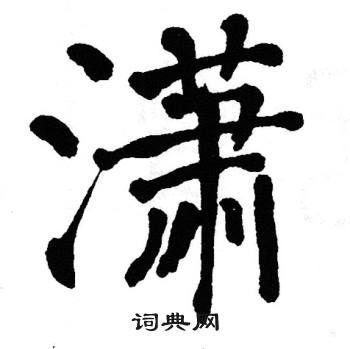 潇
词典网